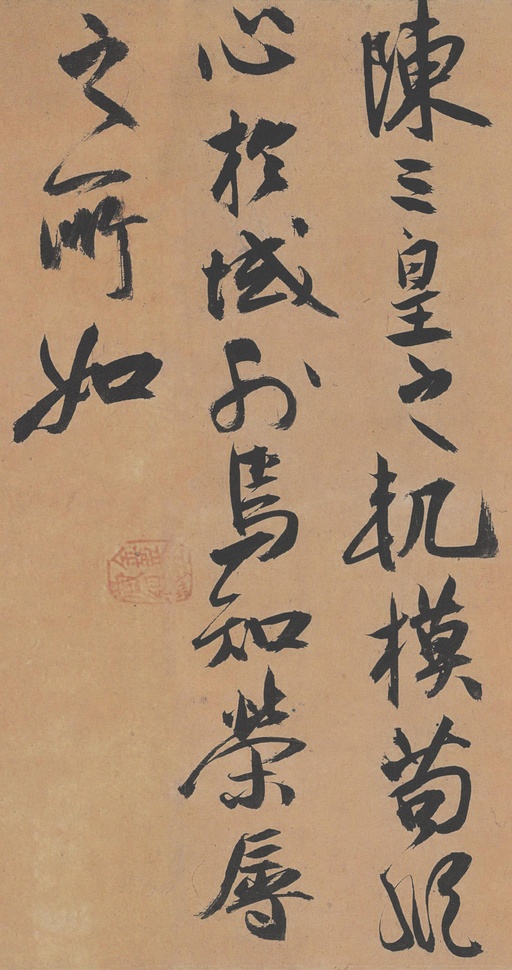 陳三皇之軌模苟縱
心於域外焉知榮辱
之所如